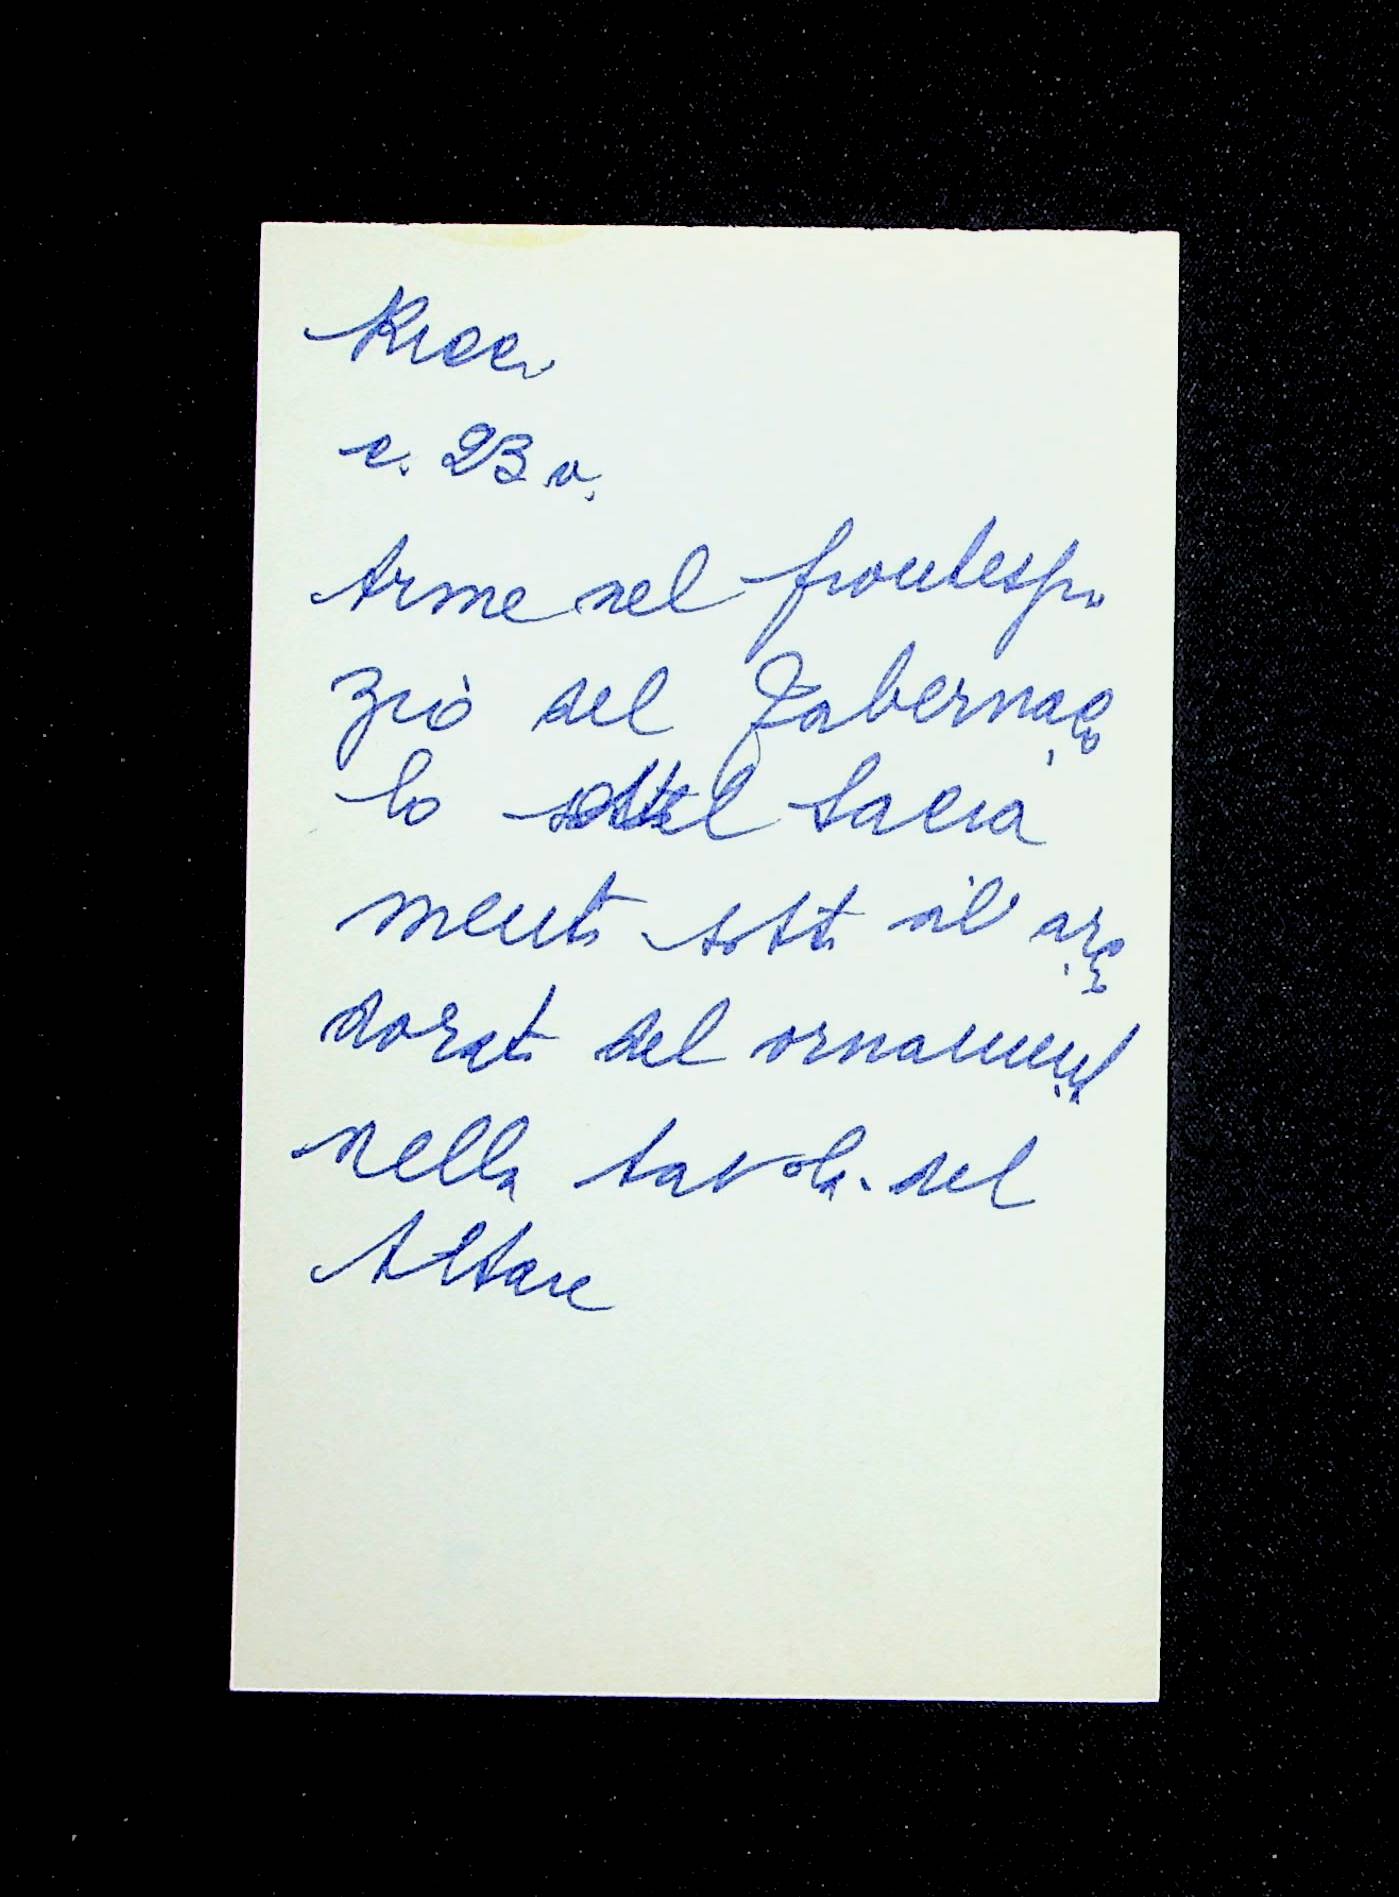 Ricci
c. 23 v.
Arme nel frontespi
zio del Tabernaco
lo del Sacra
mento sotto il arco
dorato del ornamento
nella tavola del
Altare